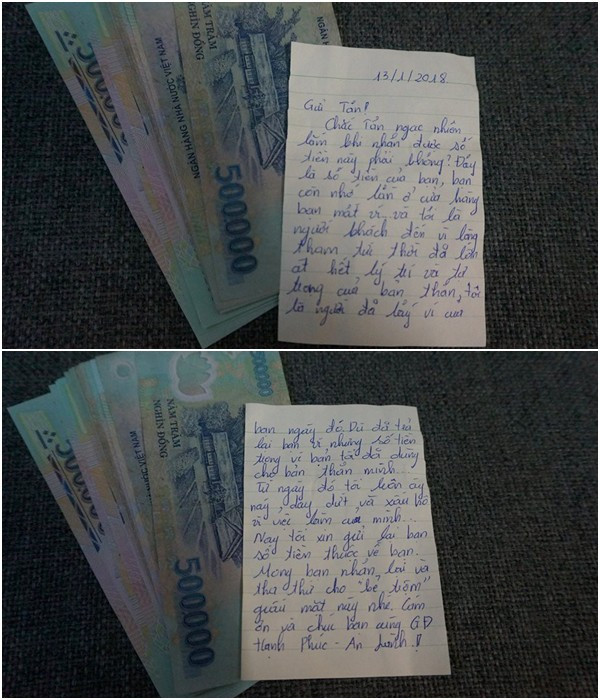 500.000
NGÂN HÀNG NHÀ NƯỚC VIỆT NAM
NĂM TRĂM
NGHÌN ĐỒNG
500000
NGÂN H
13/1/2018.
Gửi Tấn!
Chắc Tấn ngạc nhiên
lắm khi nhận được số
tiền này phải không? Đấy
là số tiền của bạn, bạn
còn nhớ lần ở cửa hàng
bạn mất ví và tôi là
người khách đến vì lòng
tham tức thời đã lấn
át hết lý trí và tự
trọng của bản thân, tôi
là người đã lấy ví của
500.000
VIỆT NAM
NĂM TRĂM
NGHÌN ĐỒNG
500000
bạn ngày đó. Dù đã trả
lại bạn ví nhưng số tiền
trong ví bạn tôi đã dùng
cho bản thân mình...
Từ ngày đó tôi luôn áy
náy, day dứt, và xấu hổ
vì việc làm của mình...
Nay tôi xin gửi lại bạn
số tiền thuộc về bạn.
Mong bạn nhận lại và
tha thứ cho "kẻ trộm"
giấu mặt này nhé. Cám
ơn và chúc bạn cùng GĐ
Hạnh Phúc - An Lành!